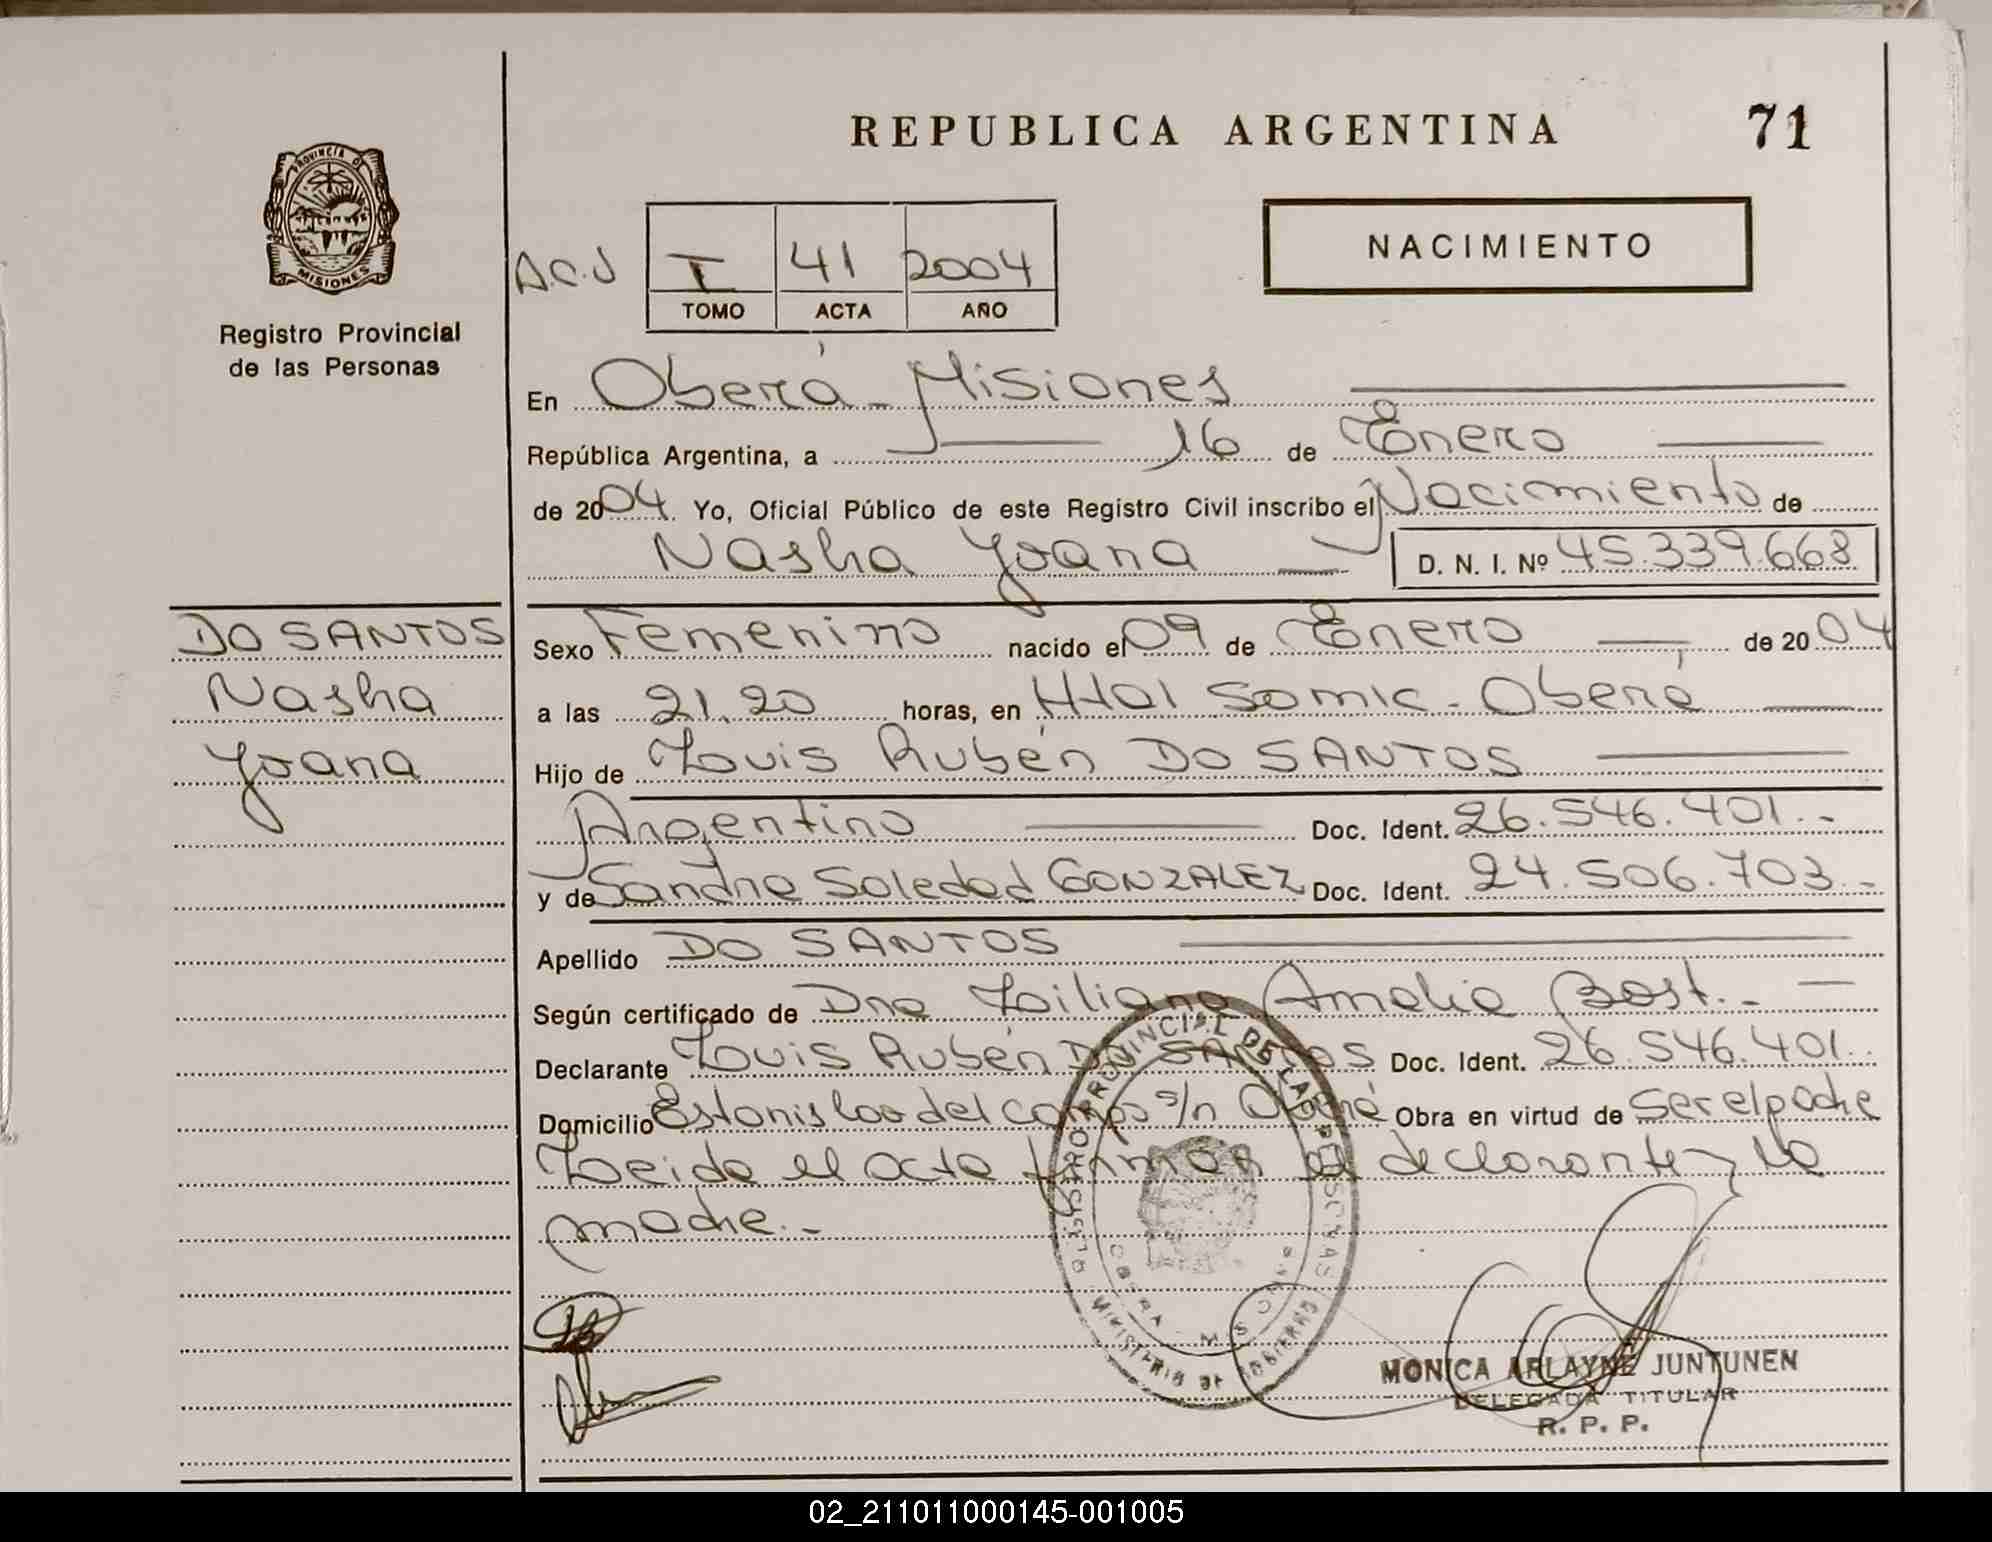 REPUBLICA ARGENTINA
71
PROVINCIA DE
MISIONES
Registro Provincial
de las Personas
NACIMIENTO
A.C.J
I 41 2004
TOMO ACTA AÑO
En Oberá - Misiones
República Argentina, a 16 de Enero
de 2004. Yo, Oficial Público de este Registro Civil inscribo el Nacimiento de
Nasha Yoana D. N. I. Nº 45.339.668
DO SANTOS
Nasha
Yoana
Sexo Femenino nacido el 09 de Enero de 2004
a las 21.20 horas, en Htal Samic - Oberá
Hijo de Louis Rubén DO SANTOS
Argentino Doc. Ident. 26.546.401.-
y de Sandra Soledad GONZALEZ Doc. Ident. 24.506.703.-
Apellido DO SANTOS
Según certificado de Dra Liliana Amelia Bast.-
Declarante Louis Rubén DO SANTOS Doc. Ident. 26.546.401.
Domicilio Estanislao del campo s/n Oberá Obra en virtud de Ser el padre
Leida el acta firman el declarante y la
madre.-
REGISTRO PROVINCIAL DE LAS PERSONAS
MINISTERIO DE GOBIERNO
OBERA
MONICA ARLAYNE JUNTUNEN
DELEGADA TITULAR
R. P. P.
02_211011000145-001005